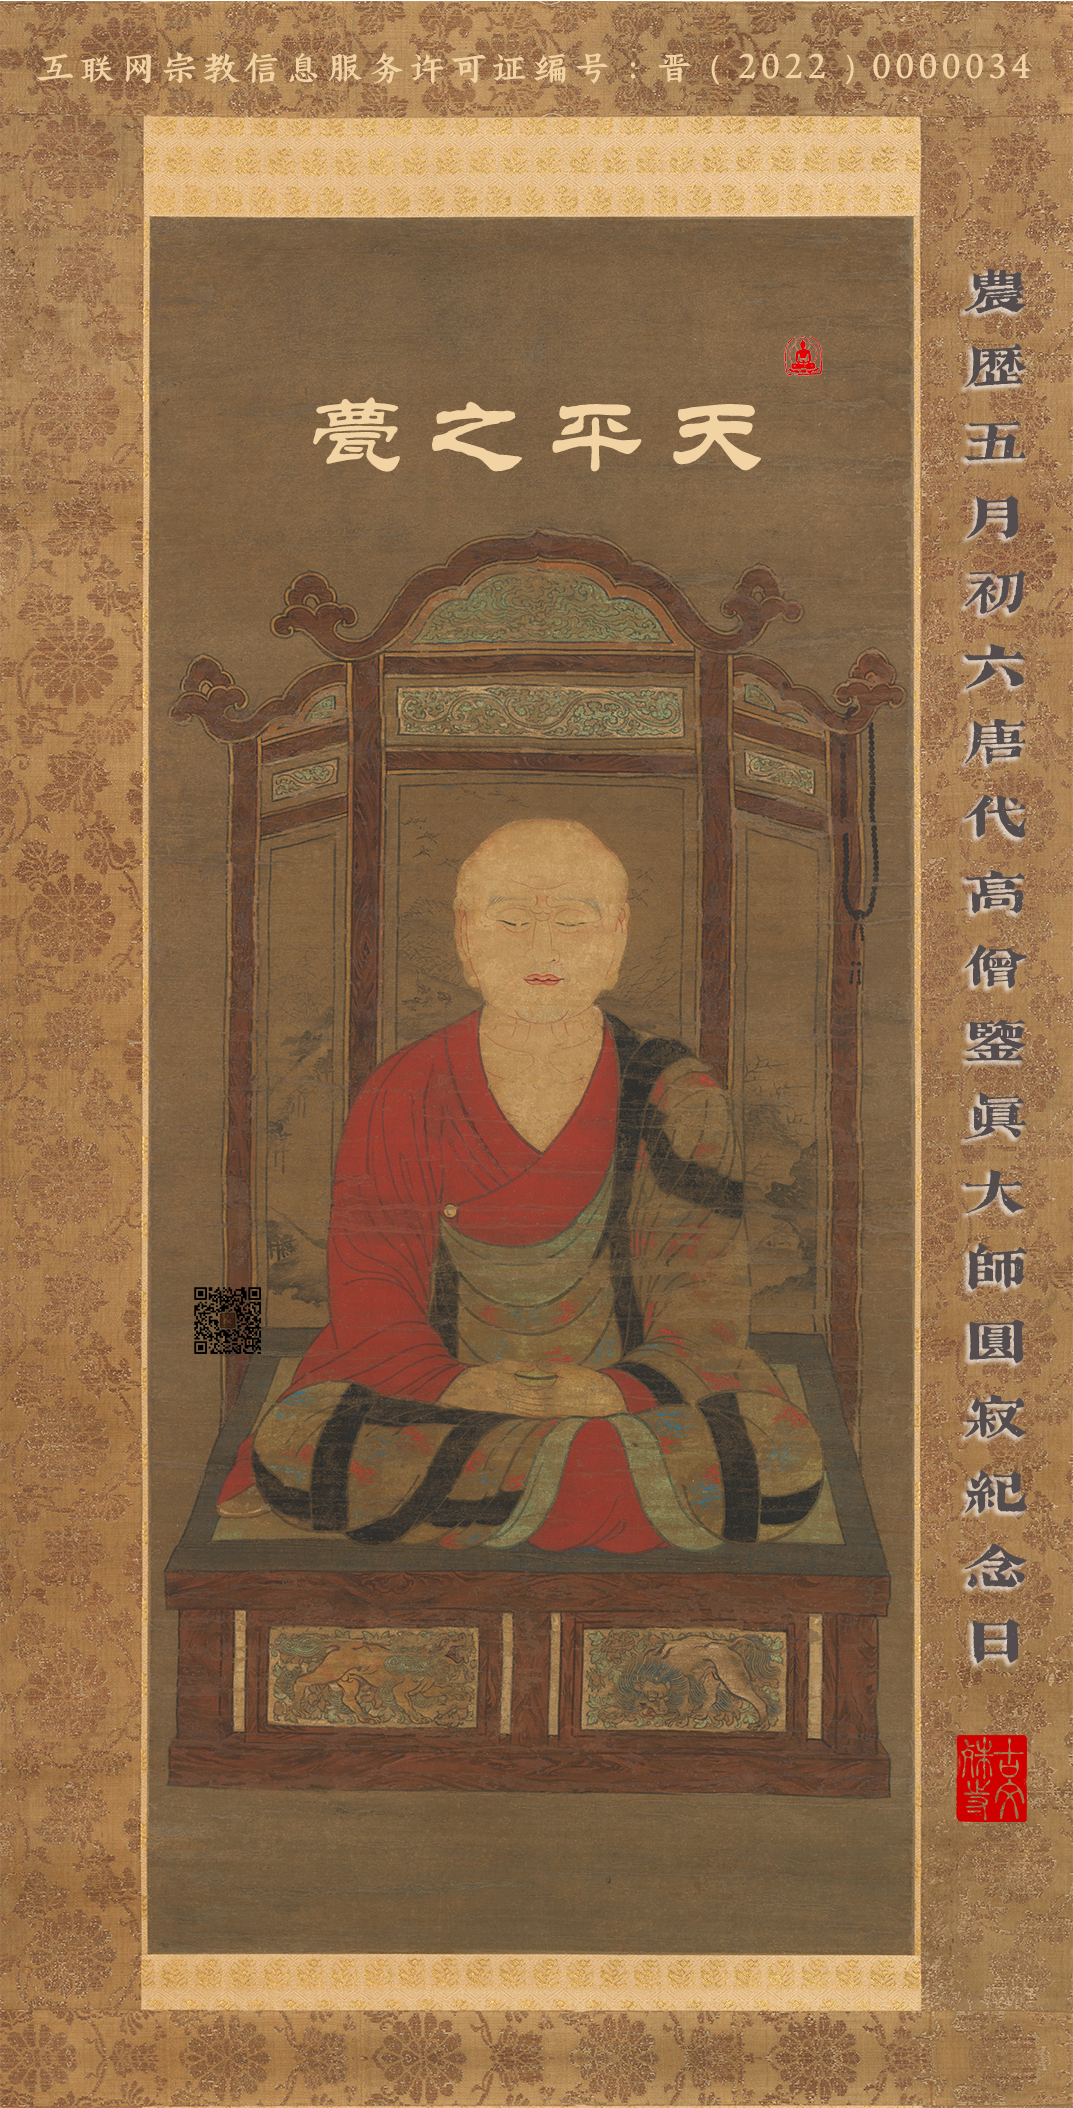 互联网宗教信息服务许可证编号：晋（2022）0000034
天平之甍
農歷五月初六唐代高僧鑒眞大師圓寂紀念日